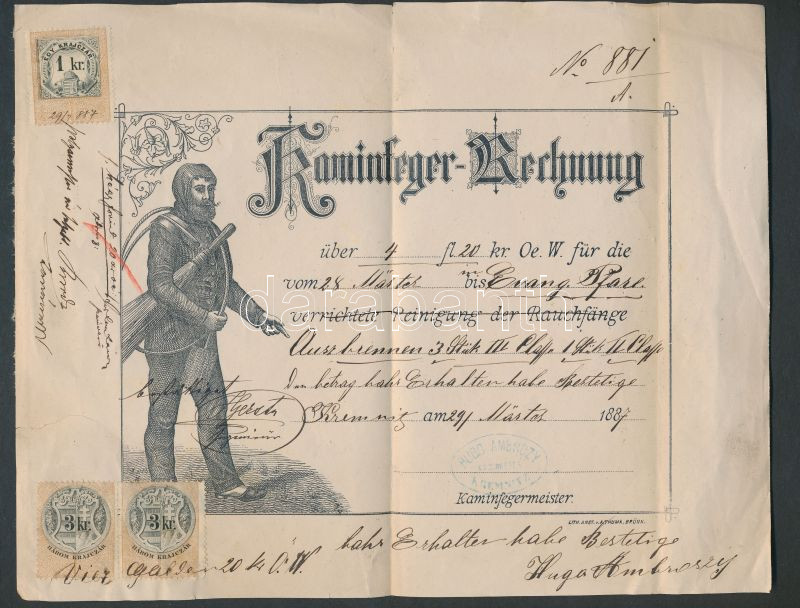 No 881
A.
EGY KRAJCZÁR
1 kr.
29/3 887
Kaminfeger-Rechnung
über 4 fl. 20 kr. Oe. W. für die
vom 28 Märtos bis Evang. Pfarl.
verrichtete Reinigung der Rauchfänge
Auszbrennen 3 Stük III Classe 1 Stük II Classe
Den betrag bahr Erhalten habe Bestetige
Kremnitz am 29/ Märtos 1887
HUGO AMBROZY
KREMNITZ
Kaminfegermeister.
LITH. ANST. v. A. THUMA, BRÜNN.
3 kr.
HÁROM KRAJCZÁR
3 kr.
HÁROM KRAJCZÁR
bahr Erhalten habe Bestetige
Vier Gulden 20 kr Ö. W.
Hugo Ambroszÿ
darabanth